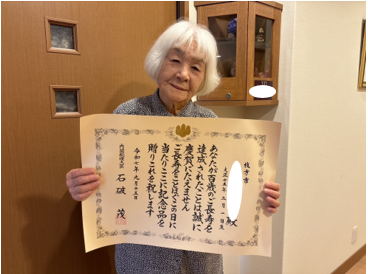 枚方市
殿
あなたが百歳のご長寿を
達成されたことは誠に
慶賀にたえません
ご長寿をことほぎこの日に
当たりここに記念品を
贈りこれを祝します
令和七年九月十五日
内閣総理大臣
石破 茂